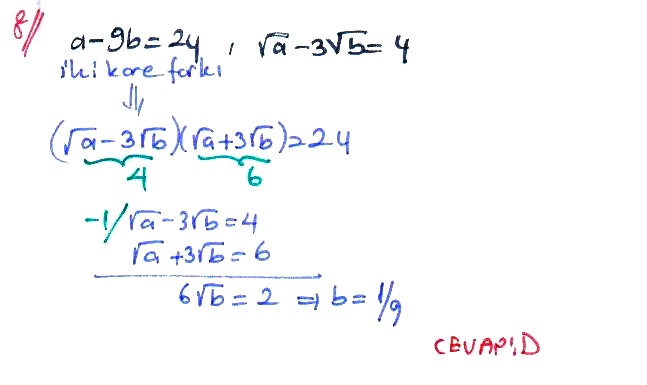 8//
a-9b=24, √a-3√b=4
iki kare farkı
⇓
(√a-3√b)(√a+3√b)=24
4 6
-1/ √a-3√b=4
√a+3√b=6
6√b=2 ⇒ b=1/9
CEVAP:D